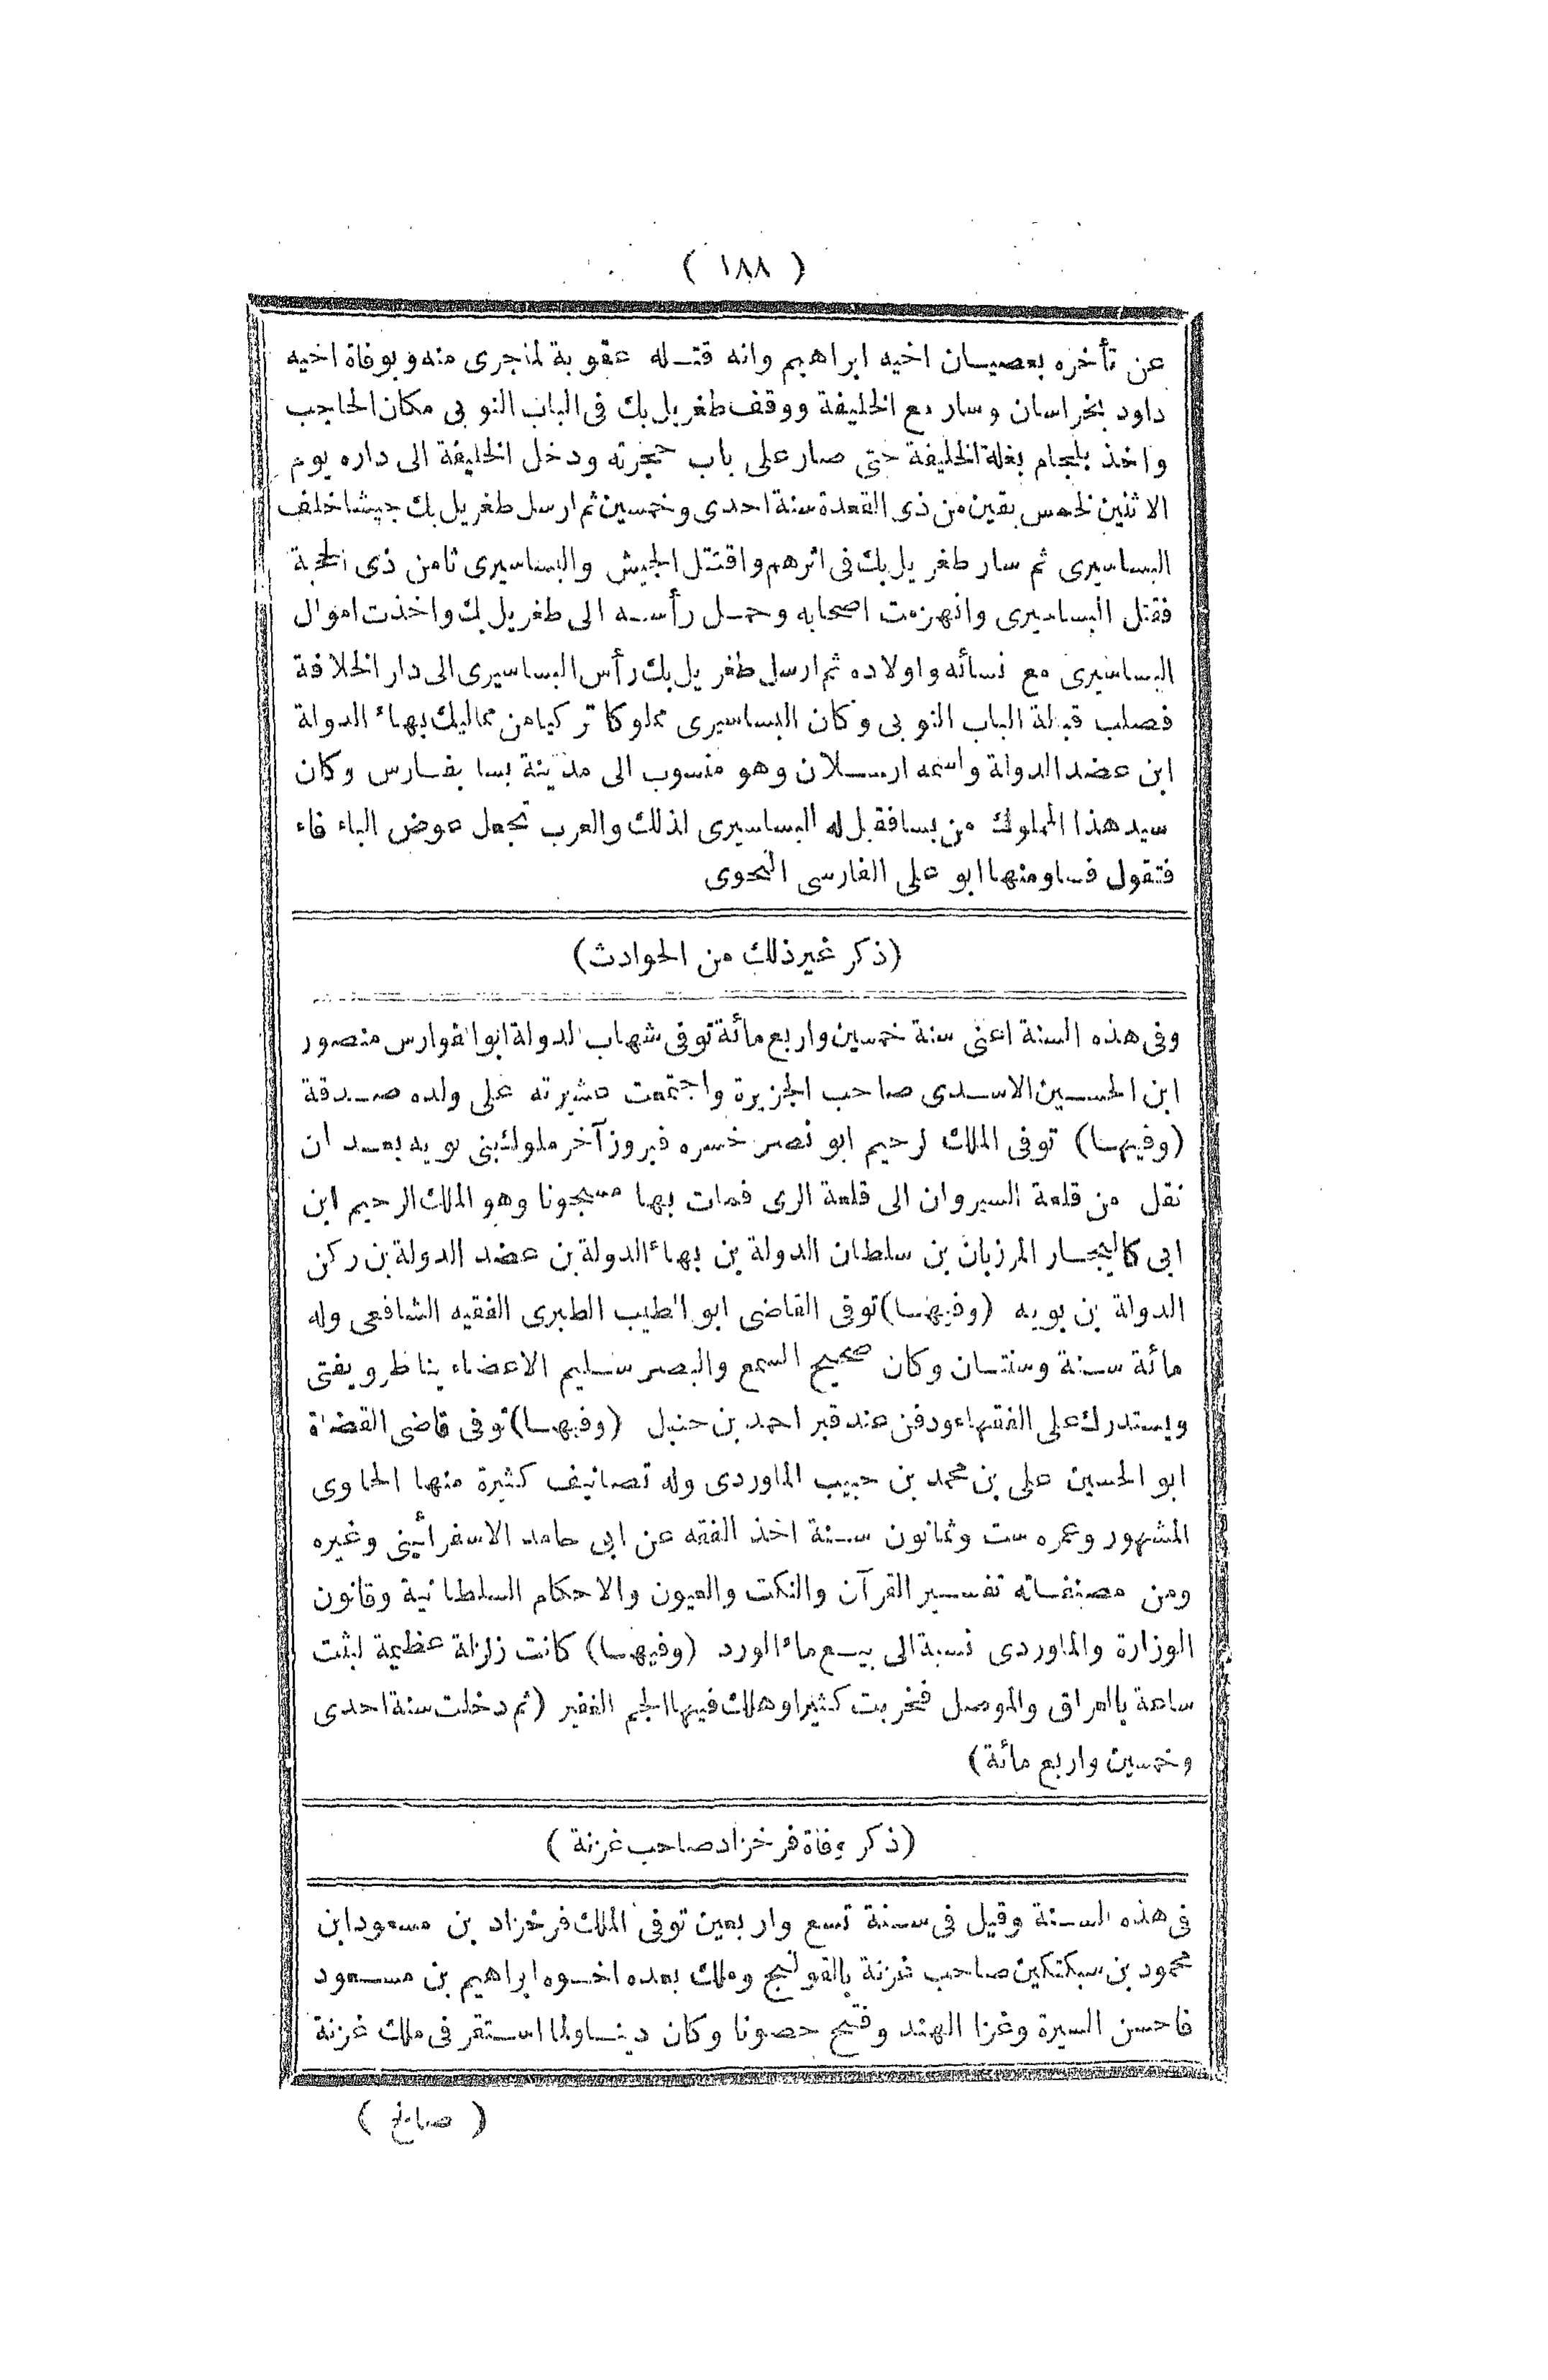 ( ١٨٨ )
عن تأخره بعصيان اخيه ابراهيم وانه قتله عقوبة لما جرى منه وبوفاة اخيه
داود بخراسان وسار مع الخليفة ووقف طغريل بك فى الباب النوبى مكان الحاجب
واخذ بلجام بغلة الخليفة حتى صار على باب حجرته ودخل الخليفة الى داره يوم
الاثنين لخمس بقين من ذى القعدة سنة احدى وخمسين ثم ارسل طغريل بك جيشا خلف
البساسيرى ثم سار طغريل بك فى اثرهم واقتتل الجيش والبساسيرى ثامن ذى الحجة
فقتل البساسيرى وانهزمت اصحابه وحمل رأسه الى طغريل بك واخذت اموال
البساسيرى مع نسائه واولاده ثم ارسل طغريل بك رأس البساسيرى الى دار الخلافة
فصلب قبالة الباب النوبى وكان البساسيرى مملوكا تركيا من مماليك بهاء الدولة
ابن عضد الدولة واسمه ارسلان وهو منسوب الى مدينة بسا بفارس وكان
سيد هذا المملوك من بسا فقيل له البساسيرى لذلك والعرب تجعل عوض الباء فاء
فتقول فسا ومنها ابو على الفارسى النحوى
(ذكر غير ذلك من الحوادث)
وفى هذه السنة اعنى سنة خمسين واربع مائة توفى شهاب الدولة ابو الفوارس منصور
ابن الحسين الاسدى صاحب الجزيرة واجتمعت عشيرته على ولده صدقة
(وفيها) توفى الملك لرحيم ابو نصر خسره فيروز آخر ملوك بنى بويه بعد ان
نقل من قلعة السيروان الى قلعة الرى فمات بها مسجونا وهو الملك الرحيم ابن
ابى كاليجار المرزبان بن سلطان الدولة بن بهاء الدولة بن عضد الدولة بن ركن
الدولة بن بويه (وفيها) توفى القاضى ابو الطيب الطبرى الفقيه الشافعى وله
مائة سنة وسنتان وكان صحيح السمع والبصر سليم الاعضاء يناظر ويفتى
ويستدرك على الفقهاء ودفن عند قبر احمد بن حنبل (وفيها) توفى قاضى القضاة
ابو الحسين على بن محمد بن حبيب الماوردى وله تصانيف كثيرة منها الحاوى
المشهور وعمره ست وثمانون سنة اخذ الفقه عن ابى حامد الاسفرأينى وغيره
ومن مصنفاته تفسير القرآن والنكت والعيون والاحكام السلطانية وقانون
الوزارة والماوردى نسبة الى بيع ماء الورد (وفيها) كانت زلزلة عظيمة لبثت
ساعة بالعراق والموصل فخربت كثيرا وهلك فيها الجم الغفير (ثم دخلت سنة احدى
وخمسين واربع مائة)
(ذكر وفاة فرخزاد صاحب غزنة)
فى هذه السنة وقيل فى سنة تسع واربعين توفى الملك فرخزاد بن مسعود ابن
محمود بن سبكتكين صاحب غزنة بالقولنج وملك بعده اخوه ابراهيم بن مسعود
فاحسن السيرة وغزا الهند وفتح حصونا وكان دينا ولما استقر فى ملك غزنة
( صالح )